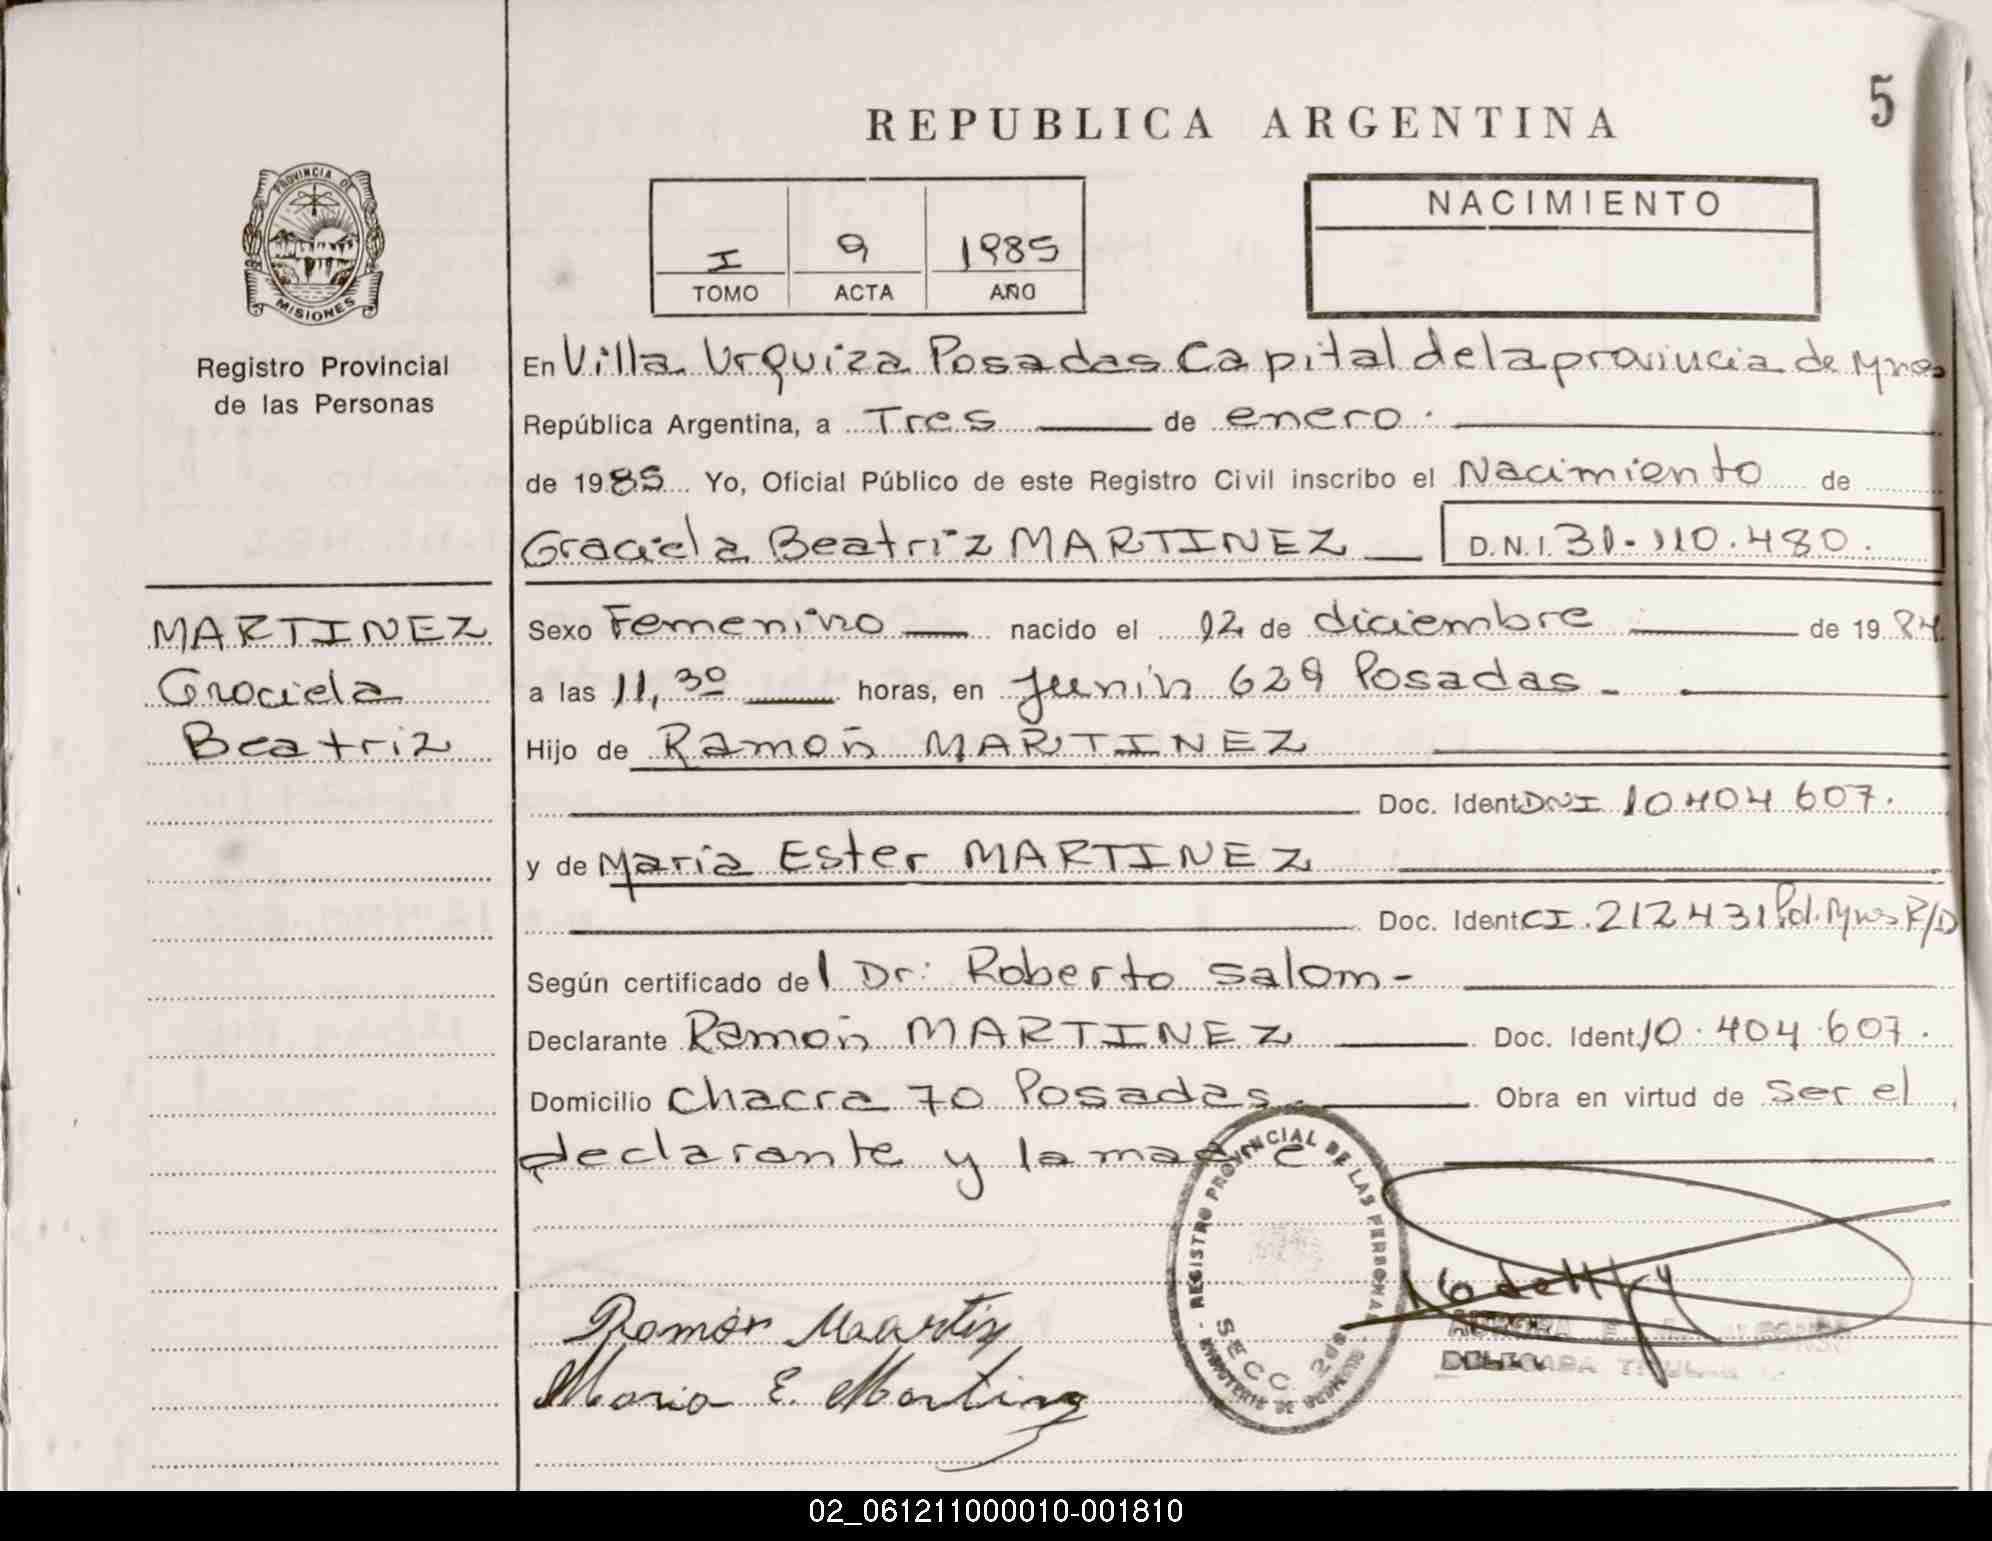 REPUBLICA ARGENTINA
5
PROVINCIA DE
MISIONES
Registro Provincial
de las Personas
I 9 1985
TOMO ACTA AÑO
NACIMIENTO
En Villa Urquiza Posadas Capital de la provincia de Mnes
República Argentina, a Tres de enero.
de 1985 Yo, Oficial Público de este Registro Civil inscribo el Nacimiento de
Graciela Beatriz MARTINEZ D.N.I. 31.110.480.
MARTINEZ
Graciela
Beatriz
Sexo Femenino nacido el 12 de diciembre de 1984
a las 11,30 horas, en Junín 629 Posadas -
Hijo de Ramón MARTINEZ
Doc. Ident DNI 10404607.
y de María Ester MARTINEZ
Doc. Ident CI. 212431 Pol. Mnes R/D
Según certificado del Dr: Roberto Salom -
Declarante Ramón MARTINEZ Doc. Ident. 10.404.607.
Domicilio Chacra 70 Posadas. Obra en virtud de ser el
declarante y la madre
REGISTRO PROVINCIAL DE LAS PERSONAS
SECC. 2da
MINISTERIO DE GOBIERNO
Ramón Martinz
Maria E. Martinez
AURORA E.
DELEGADA TITULAR
02_061211000010-001810